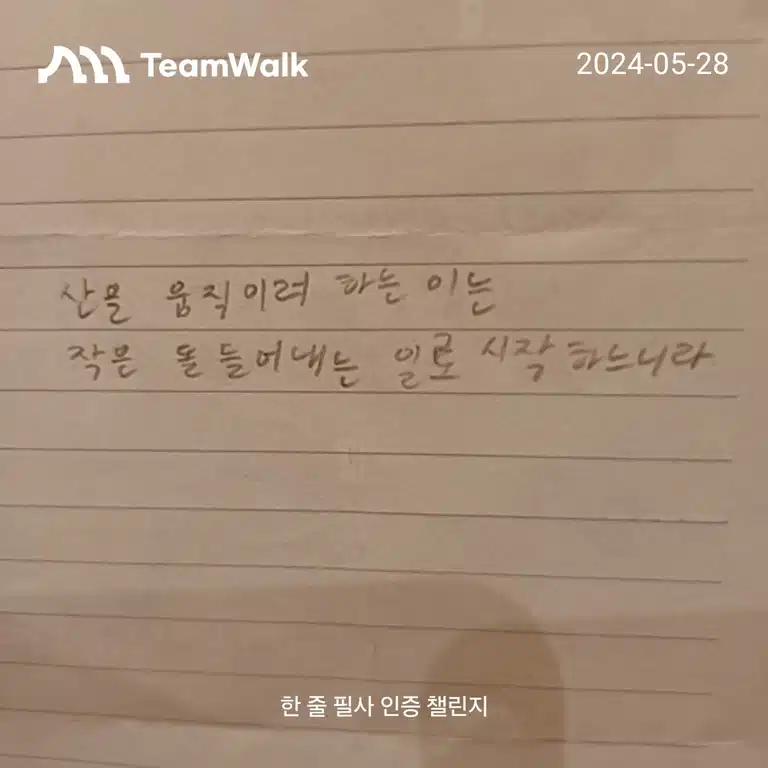 TeamWalk
2024-05-28
산을 움직이려 하는 이는
작은 돌 들어내는 일로 시작하느니라
한 줄 필사 인증 챌린지